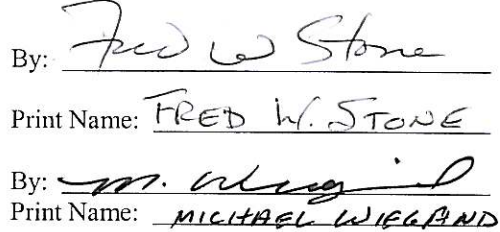 By: Fred W Stone
Print Name: FRED W. STONE
By: M. Wiegand
Print Name: MICHAEL WIEGAND